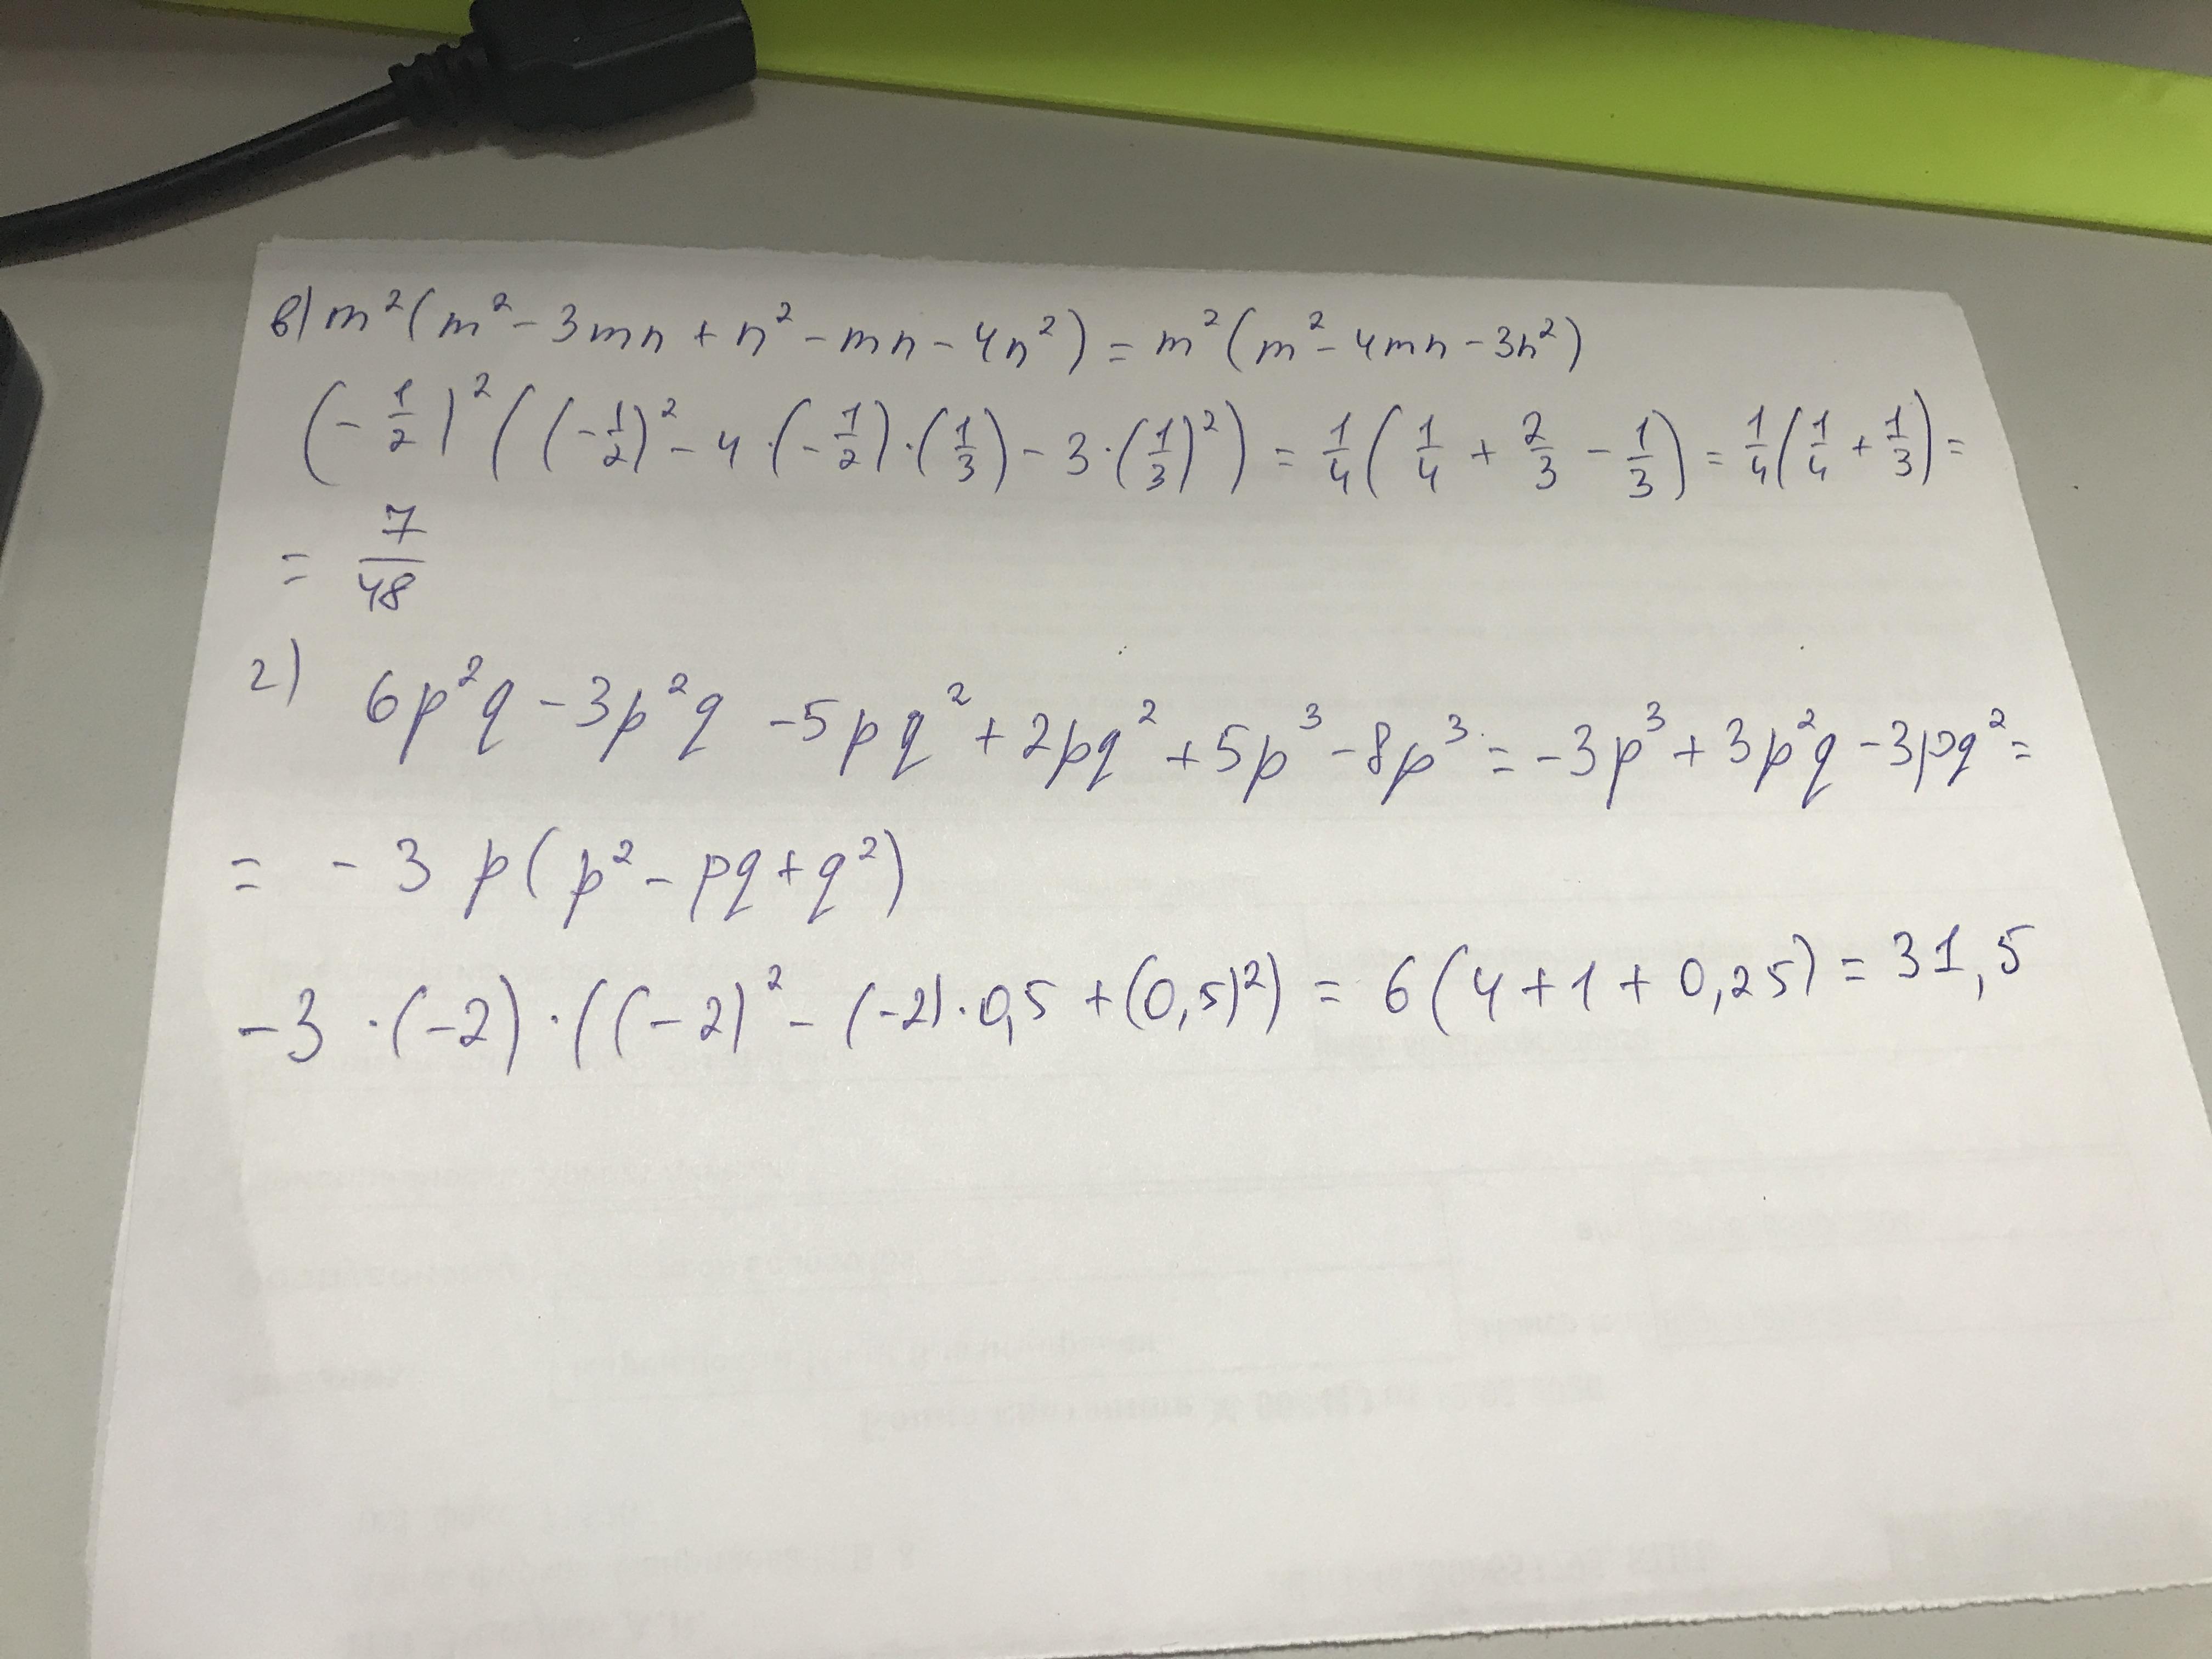 в) m²(m² - 3mn + n² - mn - 4n²) = m²(m² - 4mn - 3n²)
(-1/2)²((-1/2)² - 4·(-1/2)·(1/3) - 3·(1/3)²) = 1/4(1/4 + 2/3 - 1/3) = 1/4(1/4 + 1/3) =
= 7/48
г) 6p²q - 3p²q - 5pq² + 2pq² + 5p³ - 8p³ = -3p³ + 3p²q - 3pq² =
= -3p(p² - pq + q²)
-3·(-2)·((-2)² - (-2)·0,5 + (0,5)²) = 6(4 + 1 + 0,25) = 31,5